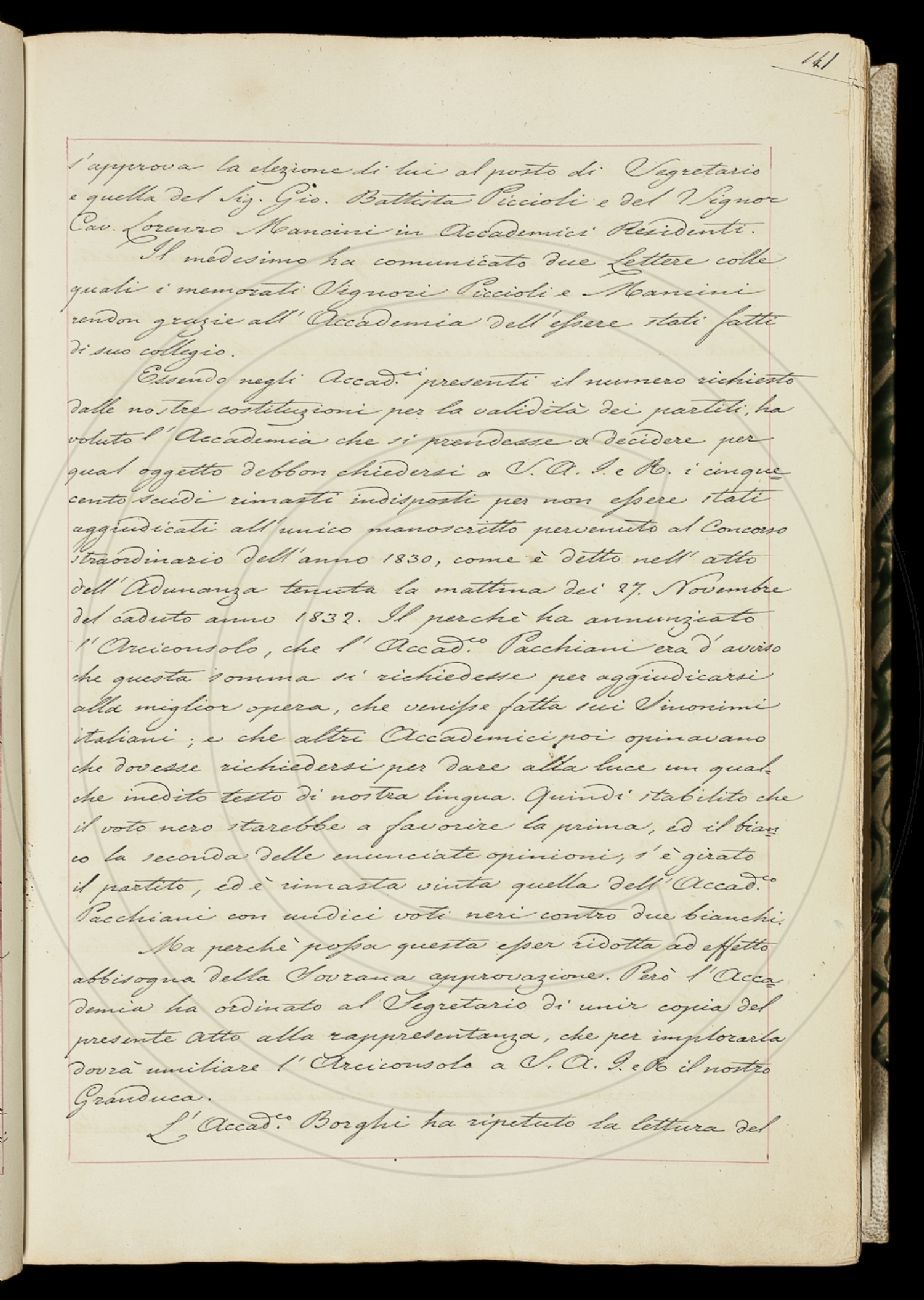 141
s'approva la elezione di lui al posto di Segretario
e quella del Sig. Gio. Battista Piccioli e del Signor
Cav. Lorenzo Mancini in Accademici Residenti.
Il medesimo ha comunicato due Lettere colle
quali i memorati Signori Piccioli e Mancini
rendon grazie all' Accademia dell'essere stati fatti
di suo collegio.
Essendo negli Accad.ci presenti il numero richiesto
dalle nostre costituzioni per la validità dei partiti, ha
voluto l' Accademia che si prendesse a decidere per
qual oggetto debbon chiedersi a S. A. I. e R. i cinque=
cento scudi rimasti indisposti per non essere stati
aggiudicati all'unico manoscritto pervenuto al Concorso
straordinario dell'anno 1830, come è detto nell' atto
dell' Adunanza tenuta la mattina dei 27. Novembre
del caduto anno 1832. Il perchè ha annunziato
l' Arciconsolo, che l' Accad.co Pacchiani era d'avviso
che questa somma si richiedesse per aggiudicarsi
alla miglior opera, che venisse fatta sui Sinonimi
italiani; e che altri Accademici poi opinavano
che dovesse richiedersi per dare alla luce un qual-
che inedito testo di nostra lingua. Quindi stabilito che
il voto nero starebbe a favorire la prima, ed il bian=
co la seconda delle enunciate opinioni, s'è girato
il partito, ed è rimasta vinta quella dell' Accad.co
Pacchiani con undici voti neri contro due bianchi.
Ma perchè possa questa esser ridotta ad effetto
abbisogna della Sovrana approvazione. Però l' Acca=
demia ha ordinato al Segretario di unir copia del
presente Atto alla rappresentanza, che per implorarla
dovrà umiliare l' Arciconsolo a S. A. I. e R il nostro
Granduca.
L' Accad.co Borghi ha ripetuto la lettura del